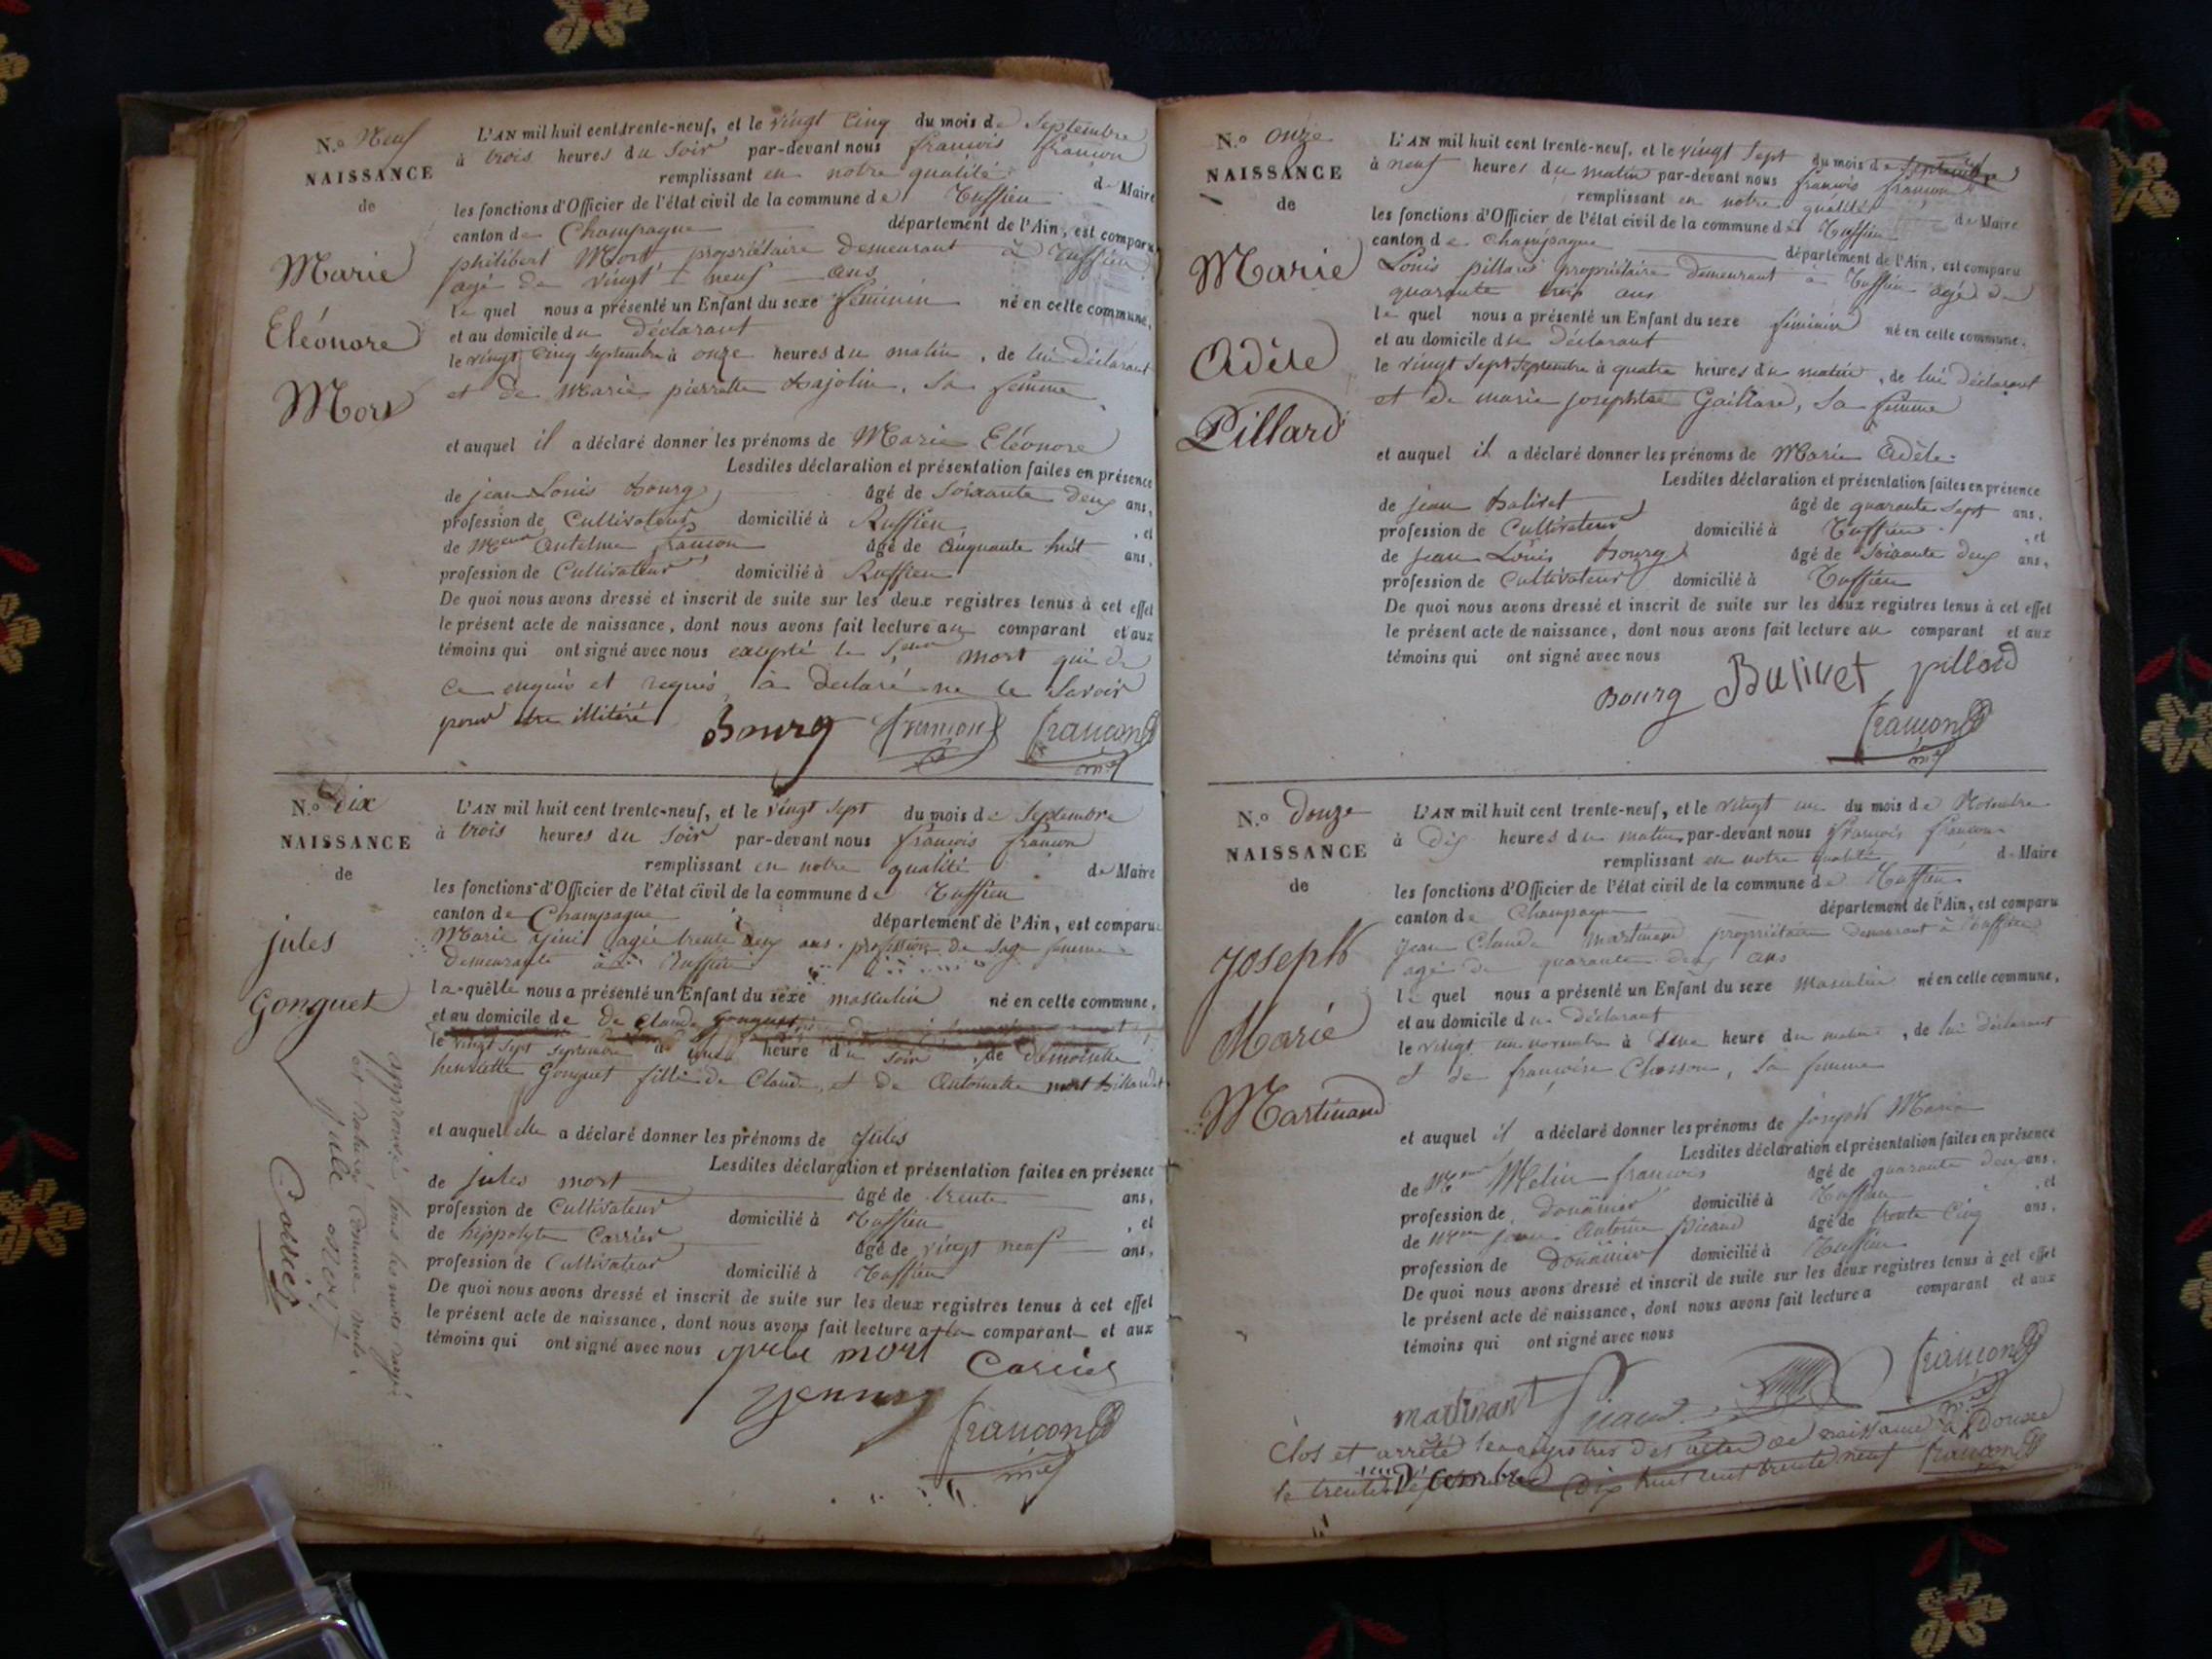 N.o Neuf
NAISSANCE
de
Marie
Eléonore
Mort
L'AN mil huit cent trente-neuf, et le vingt cinq du mois de Septembre
à trois heures du Soir par-devant nous françois françon
remplissant en notre qualité de Maire
les fonctions d'Officier de l'état civil de la commune de Ruffieu
canton de Champagne département de l'Ain, est comparu
philibert Mort, propriétaire demeurant à Ruffieu
agé de vingt neuf ans
le quel nous a présenté un Enfant du sexe féminin né en cette commune,
et au domicile du déclarant
le vingt cinq Septembre à onze heures du matin, de lui déclarant
et de Marie pierrette, Sa femme
et auquel il a déclaré donner les prénoms de Marie Eléonore
Lesdites déclaration et présentation faites en présence
de jean Louis Bourg âgé de Soixante deux ans,
profession de Cultivateur domicilié à Ruffieu, et
de Antelme françon âgé de cinquante huit ans,
profession de Cultivateur domicilié à Ruffieu
De quoi nous avons dressé et inscrit de suite sur les deux registres tenus à cet effet
le présent acte de naissance, dont nous avons fait lecture au comparant et aux
témoins qui ont signé avec nous excepté le Mort qui de
ce enquis et requis, à déclaré ne le Savoir
pour être illitéré
Bourg françon françon
N.o Dix
NAISSANCE
de
jules
Gonguet
L'AN mil huit cent trente-neuf, et le vingt Sept du mois de Septembre
à trois heures du Soir par-devant nous françois françon
remplissant en notre qualité de Maire
les fonctions d'Officier de l'état civil de la commune de Ruffieu
canton de Champagne département de l'Ain, est comparu
Marie agée trente deux ans, profession de Sage femme
demeurante à Ruffieu
la quelle nous a présenté un Enfant du sexe masculin né en cette commune,
et au domicile de de Claude Gonguet
le vingt sept Septembre à une heure du soir, de demoiselle
henriette Gonguet fille de Claude, et de Antoinette
et auquel elle a déclaré donner les prénoms de Jules
Lesdites déclaration et présentation faites en présence
de jules mort âgé de trente ans,
profession de Cultivateur domicilié à Ruffieu, et
de hippolyte Carrier âgé de vingt neuf ans,
profession de Cultivateur domicilié à Ruffieu
De quoi nous avons dressé et inscrit de suite sur les deux registres tenus à cet effet
le présent acte de naissance, dont nous avons fait lecture a la comparant et aux
témoins qui ont signé avec nous
jule mort Carrier
françon
approuvé tous les mots rayé
comme nuls.
jule mort
Carrier
N.o onze
NAISSANCE
de
Marie
Adèle
Pillard
L'AN mil huit cent trente-neuf, et le vingt Sept du mois de Septembre
à neuf heures du matin par-devant nous françois françon
remplissant en notre qualité de Maire
les fonctions d'Officier de l'état civil de la commune de Ruffieu
canton de Champagne département de l'Ain, est comparu
Louis pillard propriétaire demeurant à Ruffieu agé de
quarante trois ans
le quel nous a présenté un Enfant du sexe féminin né en cette commune,
et au domicile du déclarant
le vingt Sept Septembre à quatre heures du matin, de lui déclarant
et de marie josephte Gaillard, Sa femme
et auquel il a déclaré donner les prénoms de Marie Adèle
Lesdites déclaration et présentation faites en présence
de jean Balivet âgé de quarante Sept ans,
profession de Cultivateur domicilié à Ruffieu, et
de jean Louis Bourg âgé de Soixante deux ans,
profession de Cultivateur domicilié à Ruffieu
De quoi nous avons dressé et inscrit de suite sur les deux registres tenus à cet effet
le présent acte de naissance, dont nous avons fait lecture au comparant et aux
témoins qui ont signé avec nous
Bourg Balivet pillard
françon
N.o douze
NAISSANCE
de
Joseph
Marie
Martinand
L'AN mil huit cent trente-neuf, et le vingt un du mois de Novembre
à Dix heures du matin par-devant nous françois françon
remplissant en notre qualité de Maire
les fonctions d'Officier de l'état civil de la commune de Ruffieu
canton de Champagne département de l'Ain, est comparu
Jean Claude Martinand propriétaire demeurant à Ruffieu
agé de quarante deux ans
le quel nous a présenté un Enfant du sexe Masculin né en cette commune,
et au domicile du déclarant
le vingt un novembre à une heure du matin, de lui déclarant
et de françoise Chosson, Sa femme
et auquel il a déclaré donner les prénoms de Joseph Marie
Lesdites déclaration et présentation faites en présence
de Melin françois âgé de quarante deux ans,
profession de Douanier domicilié à Ruffieu, et
de Antoine Picaud âgé de trente Cinq ans,
profession de Douanier domicilié à Ruffieu
De quoi nous avons dressé et inscrit de suite sur les deux registres tenus à cet effet
le présent acte de naissance, dont nous avons fait lecture a comparant et aux
témoins qui ont signé avec nous
martinant françon
Clos et arrêté les registres des actes de naissance à Douze
le trente un Décembre Dix huit cent trente neuf françon